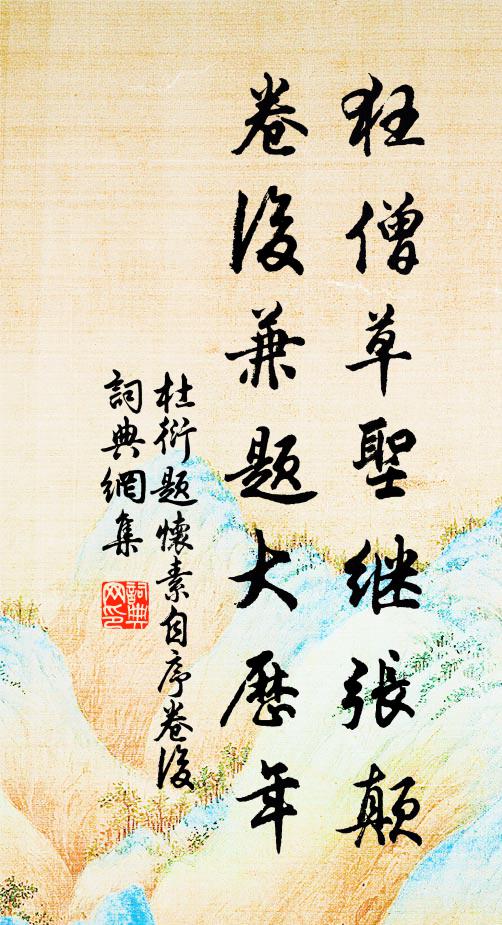 狂僧草聖継張顛
卷後兼題大歷年
杜衍題懷素自序卷後
詞典網集
詞典
网印